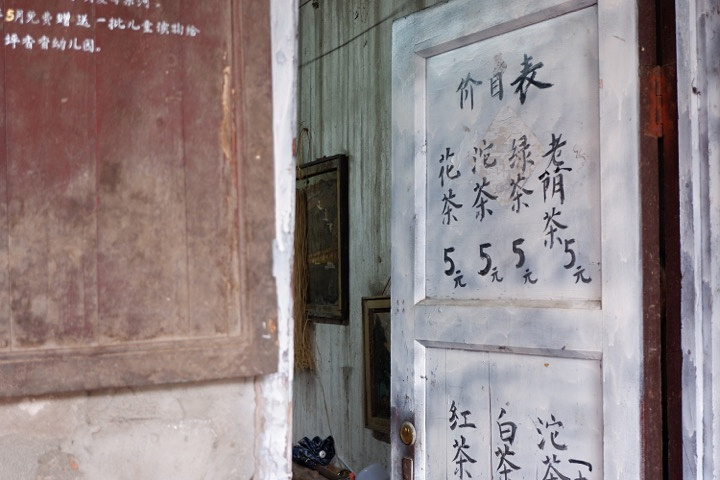 5月免费赠送一批儿童读物给
坪香育幼儿园。
价目表
老荫茶 5元
绿茶 5元
沱茶 5元
花茶 5元
沱茶
白茶
红茶